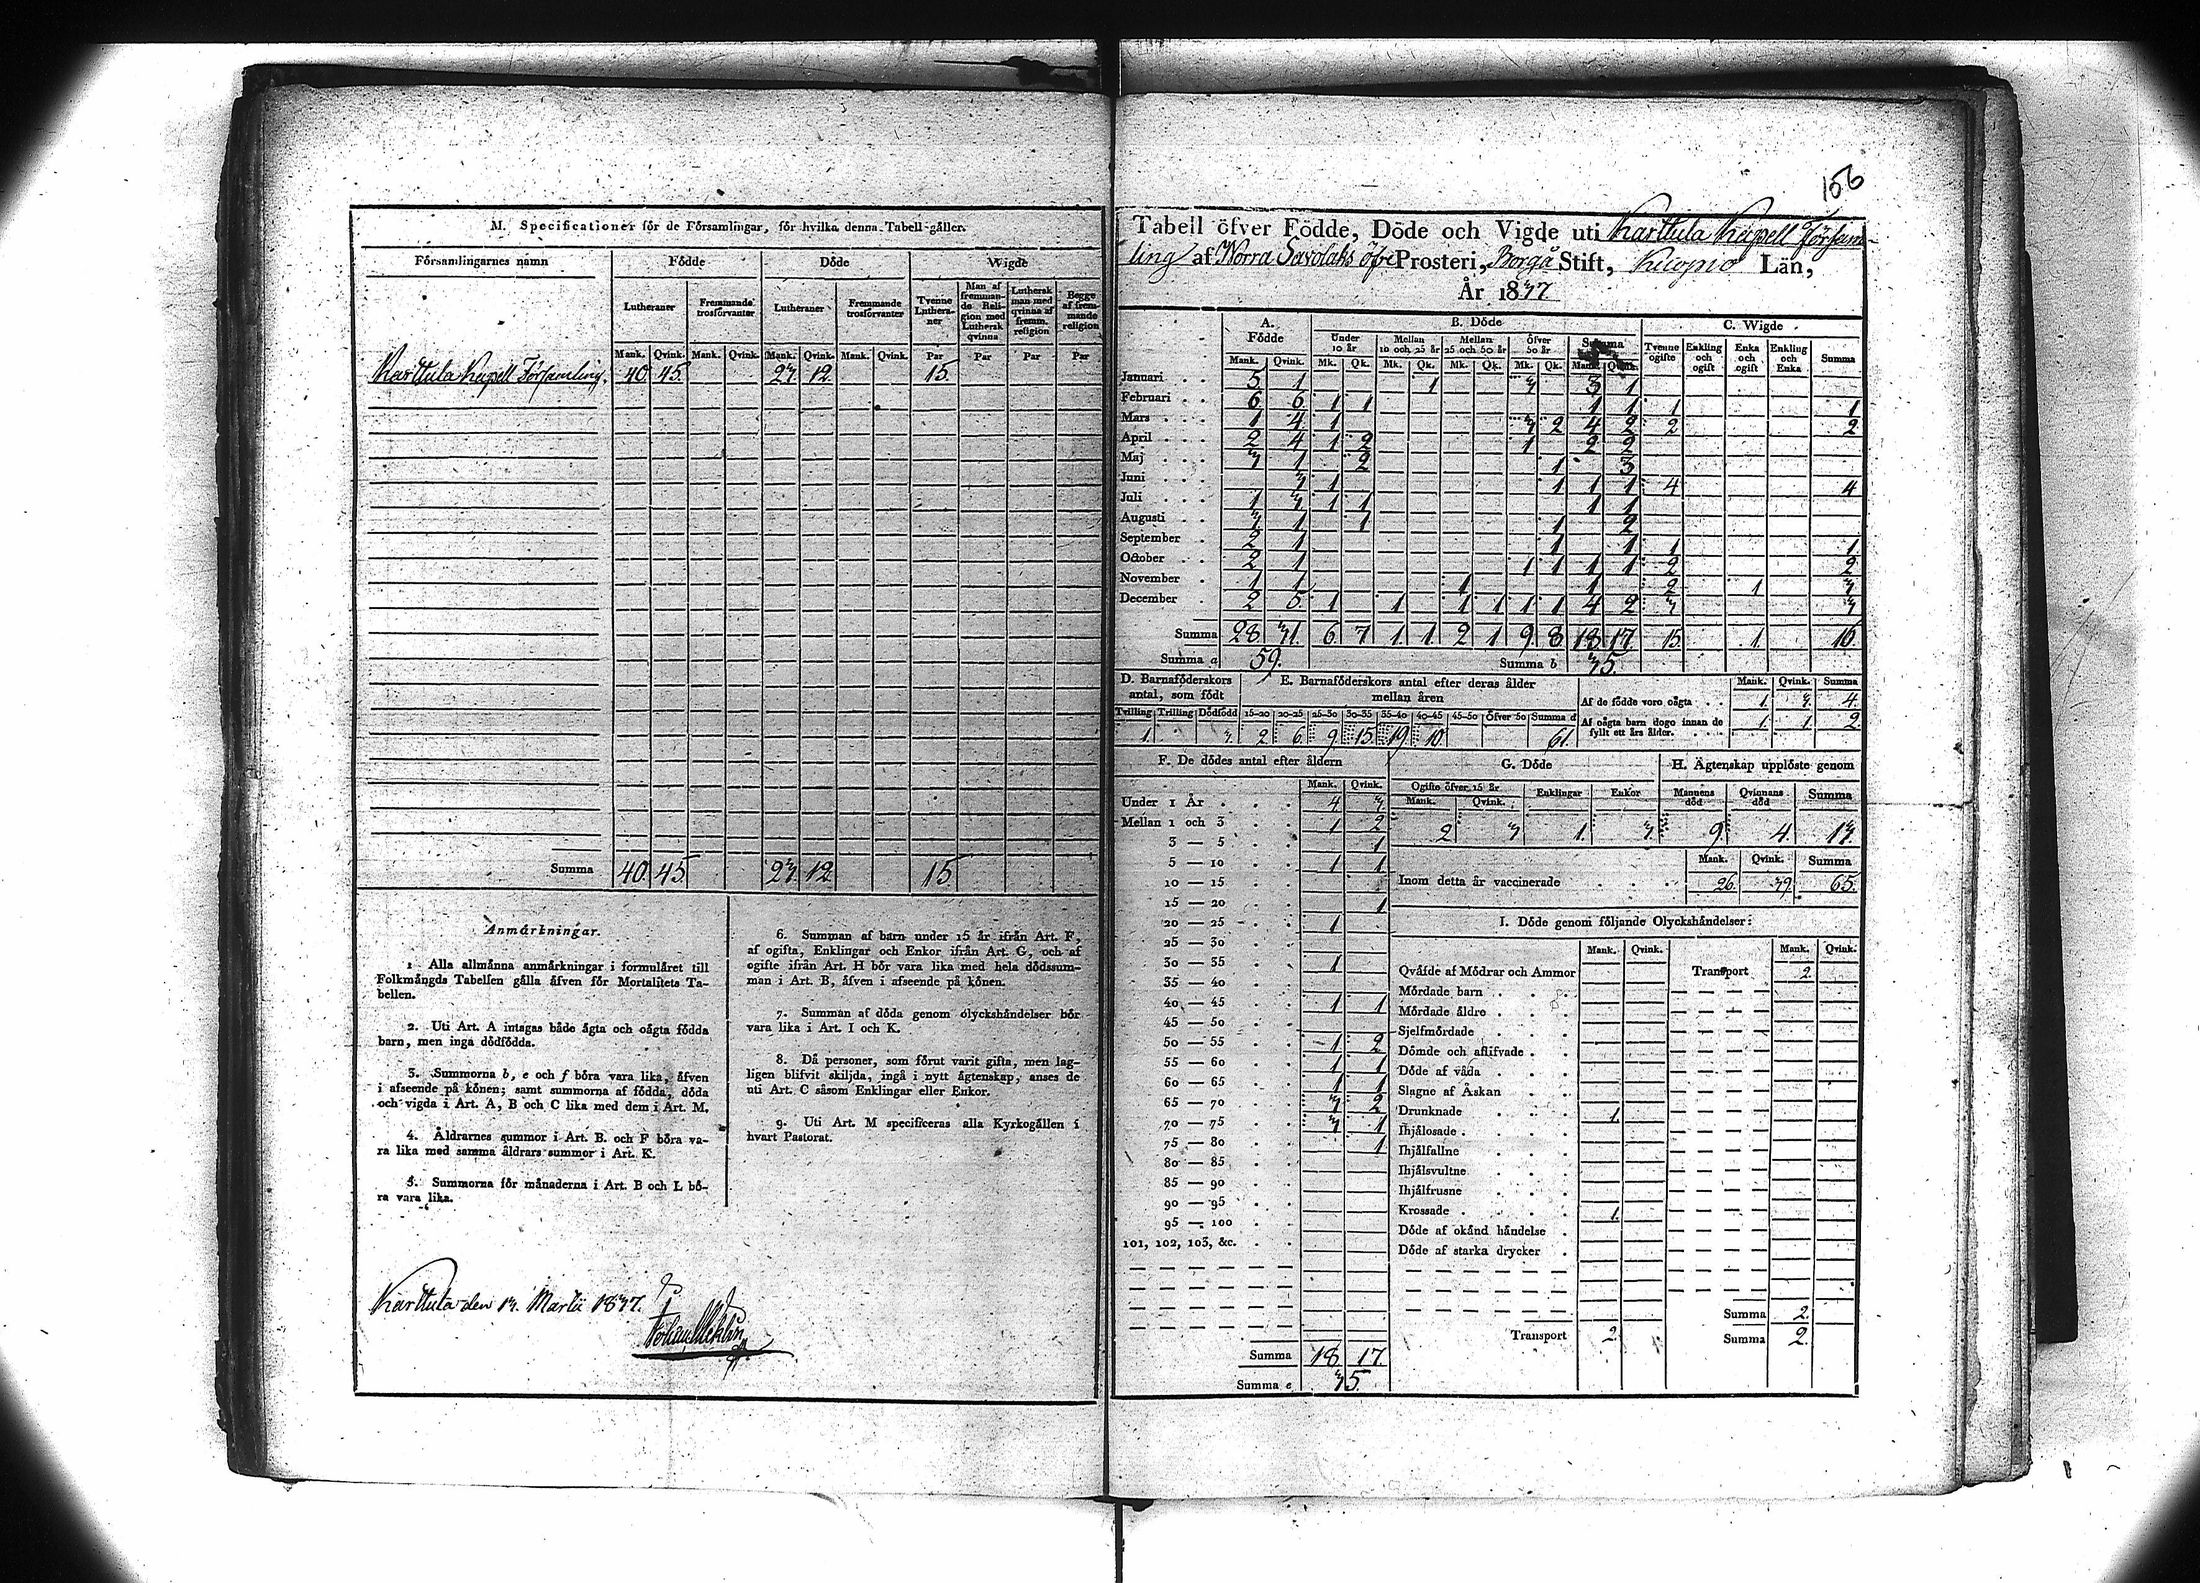 M. Specificationer för de Församlingar, för hvilka denna Tabell gäller.
Församlingarnes namn Födde Döde Wigde
Lutheraner Fremmande trosförvanter Lutheraner Fremmande trosförvanter Tvenne Lutheraner Man af fremmande Religion med Luthersk qvinna Luthersk man med qvinna af fremm. religion Begge af fremmande religion
Mank. Qvink. Mank. Qvink. Mank. Qvink. Mank. Qvink. Par Par Par Par
Karttula Kapell Församling. 40 45. 23. 12. 15.
Summa 40. 45. 23. 12. 15.
Anmärkningar.
1. Alla allmänna anmärkningar i formuläret till
Folkmängds Tabellen gälla äfven för Mortalitets Ta-
bellen.
2. Uti Art. A intagas både ägta och oägta födda
barn, men inga dödfödda.
3. Summorna b, e och f böra vara lika, äfven
i afseende på könen; samt summorna af födda, döda
och vigda i Art. A, B och C lika med dem i Art. M.
4. Åldrarnes summor i Art. B. och F böra va-
ra lika med samma åldrars summor i Art. K.
5. Summorna för månaderna i Art. B och L bö-
ra vara lika.
6. Summan af barn under 15 år ifrån Art. F,
af ogifta, Enklingar och Enkor ifrån Art. G, och af
ogifte ifrån Art. H bör vara lika med hela dödssum-
man i Art. B, äfven i afseende på könen.
7. Summan af döda genom olyckshändelser bör
vara lika i Art. I och K.
8. Då personer, som förut varit gifta, men lag-
ligen blifvit skiljda, ingå i nytt ägtenskap, anses de
uti Art. C såsom Enklingar eller Enkor.
9. Uti Art. M specificeras alla Kyrkogällen i
hvart Pastorat.
Karttula den 13. Martii 1837.
156
Tabell öfver Födde, Döde och Vigde uti Karttula Kapell Försam-
ling af Norra Savolaks öfre Prosteri, Borgå Stift, Kuopio Län,
År 1837
A. Födde B. Döde C. Wigde
Under 10 år Mellan 10 och 25 år Mellan 25 och 50 år Öfver 50 år Summa Tvenne ogifte Enkling och ogift Enka och ogift Enkling och Enka Summa
Mank. Qvink. Mk. Qk. Mk. Qk. Mk. Qk. Mk. Qk. Mank. Qvink.
Januari 5 1 1 3 3 1
Februari 6 6 1 1 1 1 1 1
Mars 1 4 1 3 2 4 2 2 2
April 2 4 1 2 1 2 2
Maj 3 1 2 1 3
Juni 3 1 1 1 1 4 4
Juli 1 3 1 1 1 1
Augusti 3 1 1 1 2
September 2 1 1 1 1 1
October 2 1 1 1 1 1 2 2
November 1 1 1 1 2 1 3
December 2 5 1 1 1 1 1 1 4 2 3 3
Summa 28 31. 6 7 1 1 2 1 9 8 18 17 15. 1. 16.
Summa a 59. Summa b 35.
D. Barnaföderskors antal, som födt E. Barnaföderskors antal efter deras ålder mellan åren Mank. Qvink. Summa
Af de födde voro oägta 1. 3. 4.
Tvilling Trilling Dödfödd 15-20 20-25 25-30 30-35 35-40 40-45 45-50 Öfver 50 Summa d
Af oägta barn dogo innan de fyllt ett års ålder. 1. 1. 2.
1. 3. 2 6. 9. 15. 19. 10. 61.
F. De dödes antal efter åldern
Mank. Qvink.
Under 1 År 4 3
Mellan 1 och 3 1 2
3 — 5 1
5 — 10 1 1
10 — 15
15 — 20 1
20 — 25 1
25 — 30
30 — 35 1
35 — 40
40 — 45 1 1
45 — 50
50 — 55 1 2
55 — 60 1 1
60 — 65 1 1
65 — 70 3 2
70 — 75 3 1
75 — 80 1
80 — 85
85 — 90
90 — 95
95 — 100
101, 102, 103, &c.
Summa 18 17.
Summa e 35.
G. Döde H. Ägtenskap upplöste genom
Ogifte öfver 15 år Enklingar Enkor Mannens död Qvinnans död Summa
Mank. Qvink.
2 3 1. 3. 9. 4. 13.
Mank. Qvink. Summa
Inom detta år vaccinerade 26. 39. 65.
I. Döde genom följande Olyckshändelser:
Mank. Qvink. Mank. Qvink.
Qväfde af Mödrar och Ammor Transport 2.
Mördade barn
Mördade äldre
Sjelfmördade
Dömde och aflifvade
Döde af våda
Slagne af Åskan
Drunknade 1.
Ihjälosade
Ihjälfallne
Ihjälsvultne
Ihjälfrusne
Krossade 1.
Döde af okänd händelse
Döde af starka drycker
Summa 2.
Transport 2. Summa 2.